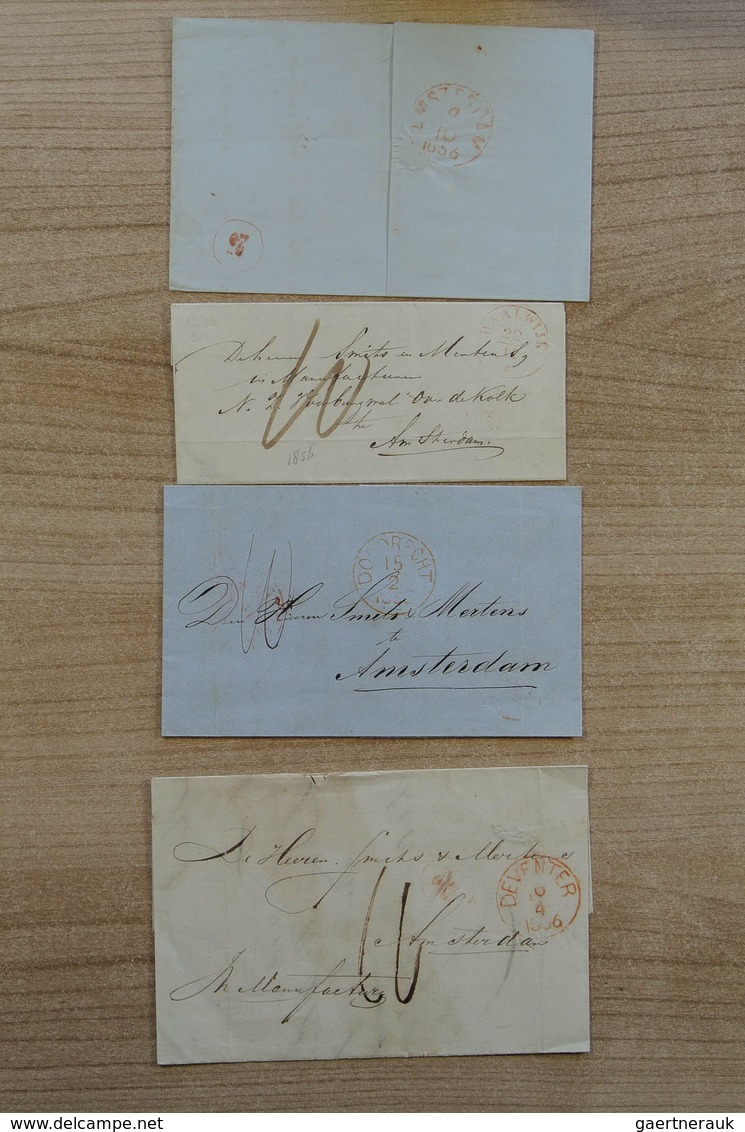 AMSTERDAM
9
10
1856
WAALWIJK
20
De heeren Smits en Mertens
in Manufacturen
N. Z. Voorburgwal Over de Kolk
te
Amsterdam
10
1856
DORDRECHT
15
2
10
Den Heeren Smits & Mertens
te
Amsterdam
De Heeren Smits & Mertens
DEVENTER
10
4
1856
Amsterdam
10
In Manufacturen
delcampe.net
gaertnerauk